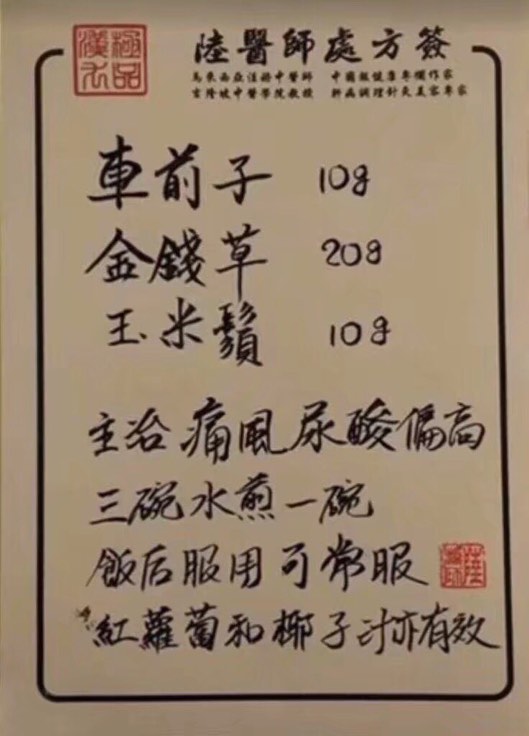 極品
漢方
陸醫師處方簽
馬來西亞注冊中醫師 中國報健康專欄作家
吉隆坡中醫學院教授 針灸美容專家
車前子 10g
金錢草 20g
玉米鬚 10g
主治痛風尿酸偏高
三碗水煎一碗
飯后服用可常服
紅蘿蔔和椰子汁亦有效